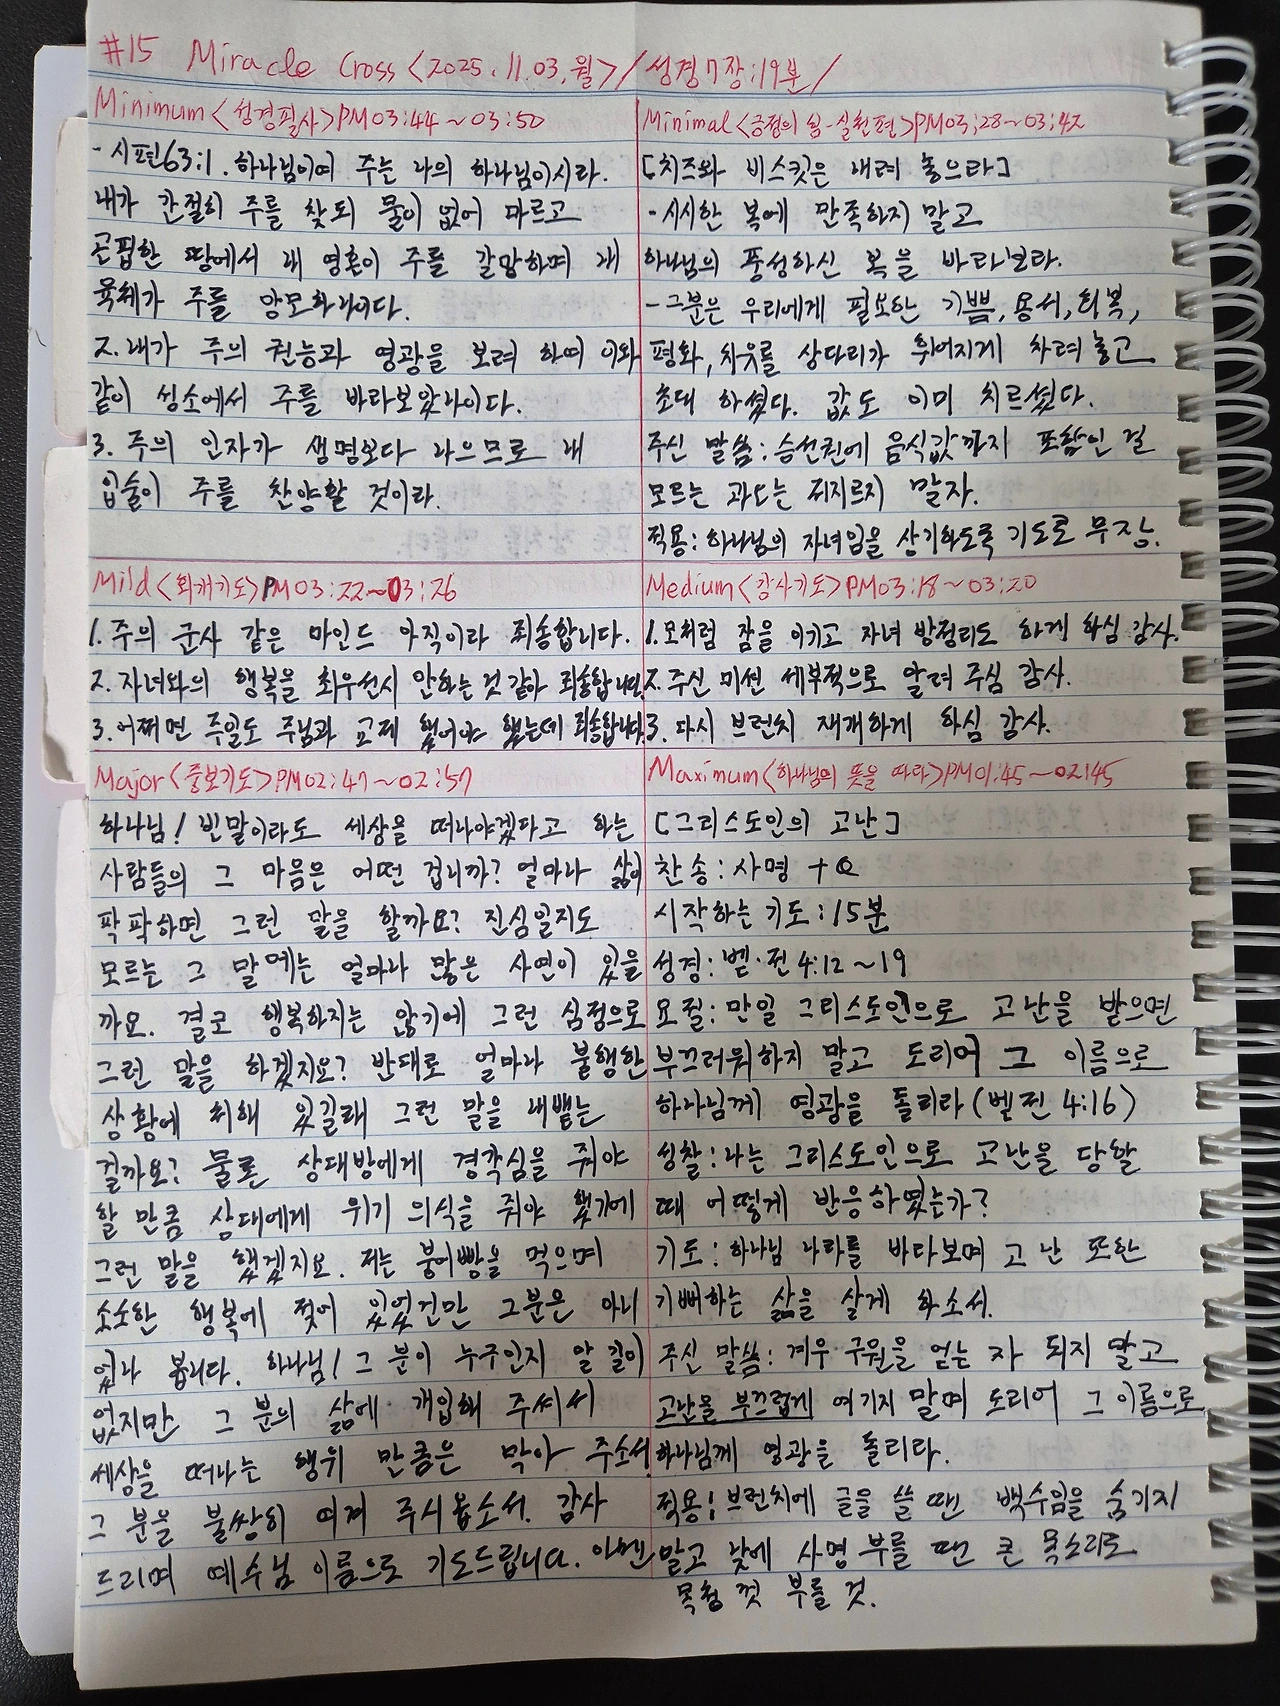 #15 Miracle Cross <2025.11.03.월> / 성경 7장:19분 /
Minimum <성경필사> PM03:44~03:50
- 시편63:1. 하나님이여 주는 나의 하나님이시라.
내가 간절히 주를 찾되 물이 없어 마르고
곤핍한 땅에서 내 영혼이 주를 갈망하며 내
육체가 주를 앙모하나이다.
2. 내가 주의 권능과 영광을 보려 하여 이와
같이 성소에서 주를 바라보았나이다.
3. 주의 인자가 생명보다 나으므로 내
입술이 주를 찬양할 것이라.
Minimal <긍정의 힘-실천편> PM03:28~03:42
[치즈와 비스킷은 내려 놓으라]
- 시시한 복에 만족하지 말고
하나님의 풍성하신 복을 바라보라.
- 그분은 우리에게 필요한 기쁨, 용서, 회복,
평화, 치유를 상다리가 휘어지게 차려 놓고
초대 하셨다. 값도 이미 치르셨다.
주신 말씀: 승선권에 음식값까지 포함인 걸
모르는 과오는 저지르지 말자.
적용: 하나님의 자녀임을 상기하도록 기도로 무장.
Mild <회개기도> PM03:22~03:26
1. 주의 군사 같은 마인드 아직이라 죄송합니다.
2. 자녀와의 행복을 최우선시 안하는 것 같아 죄송합니다.
3. 어쩌면 주일도 주님과 교제 했어야 했는데 죄송합니다.
Medium <감사기도> PM03:18~03:20
1. 모처럼 잠을 이기고 자녀 방정리도 하게 하심 감사.
2. 주신 미션 세부적으로 알려 주심 감사.
3. 다시 브런치 재개하게 하심 감사.
Major <중보기도> PM02:47~02:57
하나님! 빈말이라도 세상을 떠나야겠다고 하는
사람들의 그 마음은 어떤 겁니까? 얼마나 삶이
팍팍하면 그런 말을 할까요? 진심일지도
모르는 그 말에는 얼마나 많은 사연이 있을
까요. 결코 행복하지는 않기에 그런 심정으로
그런 말을 하겠지요? 반대로 얼마나 불행한
상황에 처해 있길래 그런 말을 내뱉는
걸까요? 물론 상대방에게 경각심을 줘야
할 만큼 상대에게 위기 의식을 줘야 했기에
그런 말을 했겠지요. 저는 붕어빵을 먹으며
소소한 행복에 젖어 있었건만 그분은 아니
었나 봅니다. 하나님! 그 분이 누구인지 알 길이
없지만 그 분의 삶에 개입해 주셔서
세상을 떠나는 행위 만큼은 막아 주소서.
그 분을 불쌍히 여겨 주시옵소서. 감사
드리며 예수님 이름으로 기도드립니다. 아멘
Maximum <하나님의 뜻을 따라> PM01:45~02:45
[그리스도인의 고난]
찬송: 사명 + Q
시작하는 기도: 15분
성경: 벧.전 4:12~19
요절: 만일 그리스도인으로 고난을 받으면
부끄러워하지 말고 도리어 그 이름으로
하나님께 영광을 돌리라(벧전 4:16)
성찰: 나는 그리스도인으로 고난을 당할
때 어떻게 반응하였는가?
기도: 하나님 나라를 바라보며 고난 또한
기뻐하는 삶을 살게 하소서.
주신 말씀: 겨우 구원을 얻는 자 되지 말고
고난을 부끄럽게 여기지 말며 도리어 그 이름으로
하나님께 영광을 돌리라.
적용: 브런치에 글을 쓸 땐 백수임을 숨기지
말고 낮에 사명 부를 땐 큰 목소리로
목청 껏 부를 것.